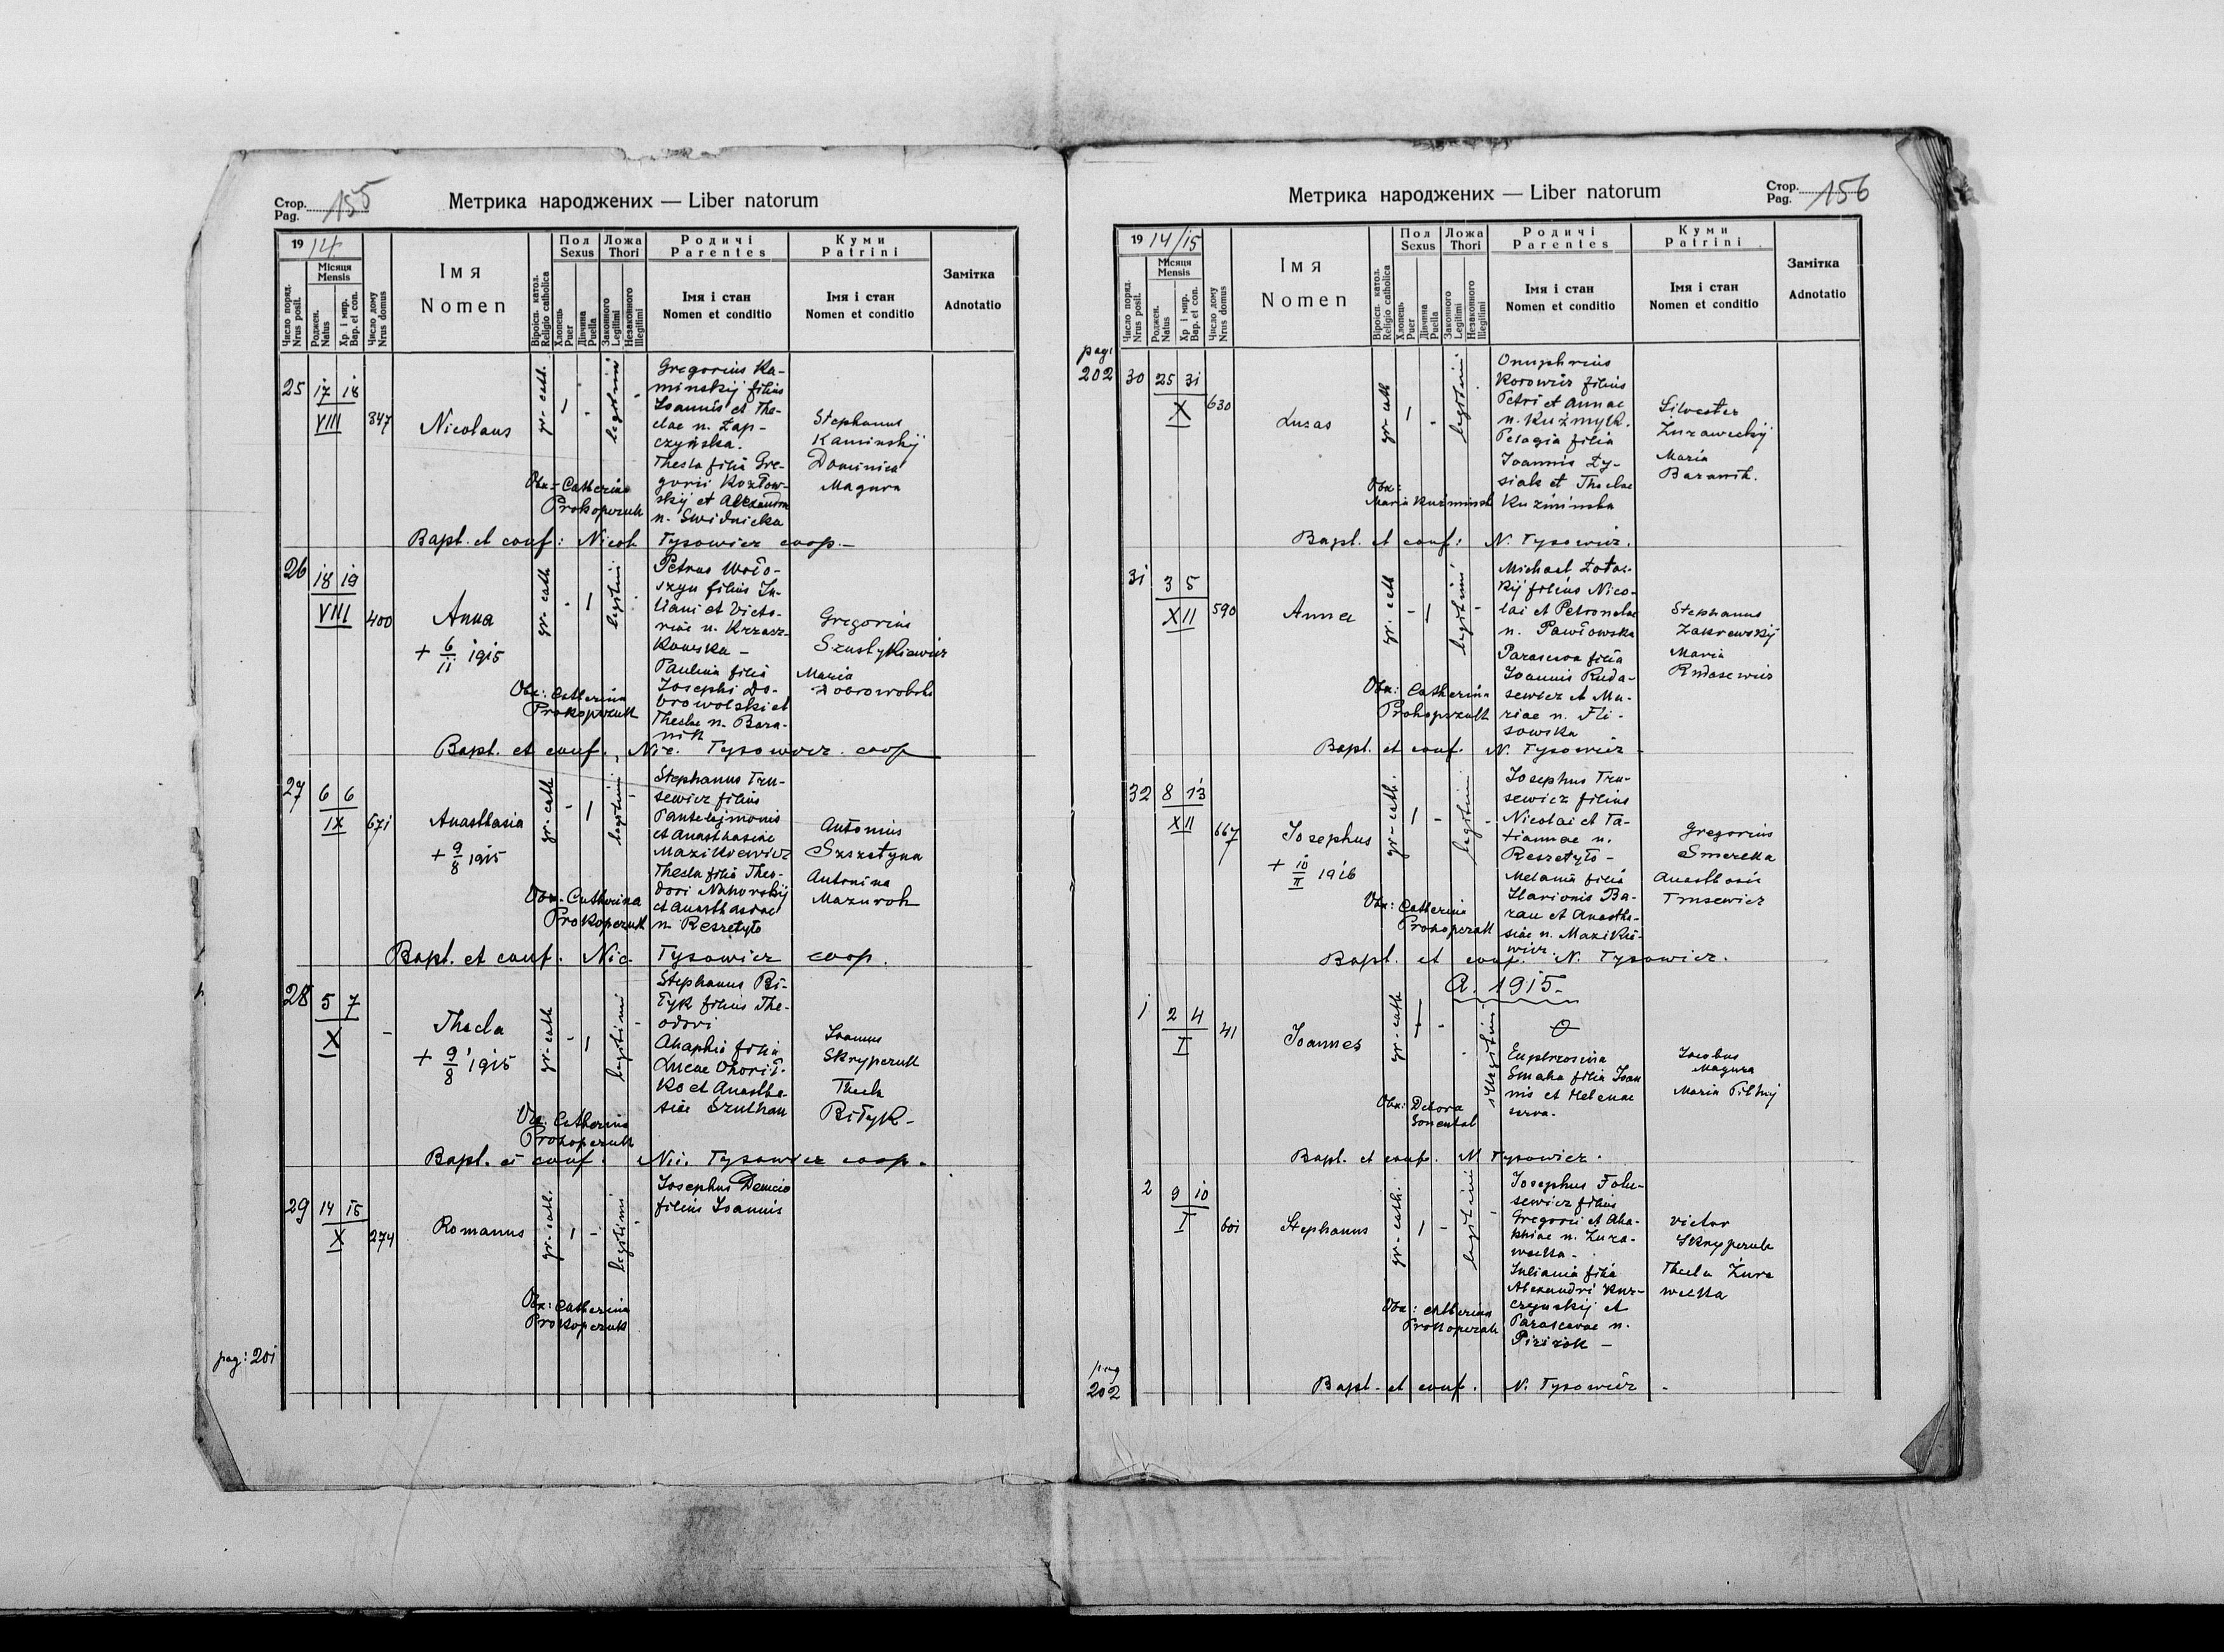 Стор.
Pag. 155
Метрика народжених — Liber natorum
19 14
Число поряд.
Nrus posit.
Місяця
Mensis
Роджен.
Natus
Хр. і мир.
Bap. et con.
Число дому
Nrus domus
Імя
Nomen
Віроісп. катол.
Religio catholica
Пол
Sexus
Хлопець
Puer
Дівчина
Puella
Ложа
Thori
Законного
Legitimi
Незаконного
Illegitimi
Родичі
Parentes
Імя і стан
Nomen et conditio
Куми
Patrini
Імя і стан
Nomen et conditio
Замітка
Adnotatio
25 17 18
VIII
347
Nicolaus
gr-cath.
legitimi
Gregorius Ka-
minskij filius
Joannis et The-
clae n. Zap-
czyńska.
Thecla filia Gre-
gorii Kozłow-
skij et Alexandra
n. Swidnicka
Stephanus
Kaminskij
Dominica
Magura
Obs.: Catherina
Prokopczuk
Bapt. et conf: Nicol Tysowicz coop.-
26 18 19
VIII
400
Anna
+ 6/11 1915
gr-cath
legitimi
Petrus Woło-
szyn filius Ju-
liani et Victo-
riae n. Krzasz-
kowska -
Paulina filia
Josephi Do-
browolski et
Theclae n. Bara-
nik
Gregorius
Szustykiewicz
Maria
Dobrowolski
Obs.: Catherina
Prokopczuk
Bapt. et conf., Nic. Tysowicz coop
27 6 6
IX
671
Anasthasia
+ 9/8 1915
gr-cath
legitimi
Stephanus Tru-
sewicz filius
Pantelejmonis
et Anasthasiae
Mazikiewicz
Thecla filia Theo-
dori Nahorskij
et Anasthasiae
n. Reszetyło
Antonius
Szszetyna
Antonina
Mazuroh
Obs. Catherina
Prokopczuk
Bapt. et conf. Nic Tysowicz coop.
28 5 7
X
-
Thecla
+ 9/8 1915
gr-cath
legitimi
Stephanus Bi-
łyk filius The-
odori
Ahaphia filia
Lucae Ohorił-
ko et Anastha-
siae Szulhan
Joannes
Skrypczuk
Thecla
Biłyk-
Obs. Catherina
Prokopczuk
Bapt. et conf. Nic. Tysowicz coop.
29 14 15
X
274
Romanus
gr-cath.
legitimi
Josephus Demcio
filius Joannis
Obs: Catherina
Prokopczuk
pag: 201
Метрика народжених — Liber natorum
Стор.
Pag. 156
19 14/15
Число поряд.
Nrus posit.
Місяця
Mensis
Роджен.
Natus
Хр і мир.
Bap. et con.
Число дому
Nrus domus
Імя
Nomen
Віроісп. катол.
Religio catholica
Пол
Sexus
Хлопець
Puer
Дівчина
Puella
Ложа
Thori
Законного
Legitimi
Незаконного
Illegitimi
Родичі
Parentes
Імя і стан
Nomen et conditio
Куми
Patrini
Імя і стан
Nomen et conditio
Замітка
Adnotatio
pag:
202
30 25 31
X
630
Lucas
gr-cath
legitimi
Onuphrius
Korowicz filius
Petri et Annae
n. Kuźmyk.
Pelagia filia
Joannis Ły-
siak et Theclae
Kuzminska
Silvester
Żuraweckij
Maria
Baranik.
Obs:
Maria Kuzminsk
Bapt. et conf: N. Tysowicz.
31 3 5
XII
590
Anna
gr. cath
legitimi
Michael Łotoc-
kij filius Nico-
lai et Petronelae
n. Pawłowska
Parasceva filia
Joannis Ruda-
sewicz et Ma-
riae n. Fli-
sowska
Stephanus
Zakrewskij
Maria
Rudasewicz
Obs: Catherina
Prokopczuk
Bapt. et conf. N. Tysowicz -
32 8 13
XII
667
Josephus
+ 10/II 1916
gr-cath.
legitimi
Josephus Tru-
sewicz filius
Nicolai et Ta-
tiannae n.
Reszetyło -
Melania filia
Ilarionis Ba-
ran et Anastha-
siae n. Mazikie-
wicz
Gregorius
Smereka
Anasthasia
Trusewicz
Obs: Catherina
Prokopczuk
Bapt. et conf. N. Tysowicz.
A. 1915.
1 2 4
I
41
Joannes
gr-cath
illegitimi
Euphrosina
Smaha filia Joan
nis et Helenae
serva.
Jacobus
Magura
Maria Pilhuj
Obs: Debora
Sonental
Bapt. et conf. N Tysowicz.
2 9 10
I
601
Stephanus
gr-cath.
legitimi
Josephus Falu-
sewicz filius
Gregorii et Aha-
phiae n. Żura-
wecka -
Juliania filia
Alexandri Kur-
czynskij et
Parascevae n.
Pizirok -
Victor
Skrypczuk
Thecla Żura
wecka
Obs: Catherina
Prokopczuk
pag
202
Bapt. et conf. N. Tysowicz -